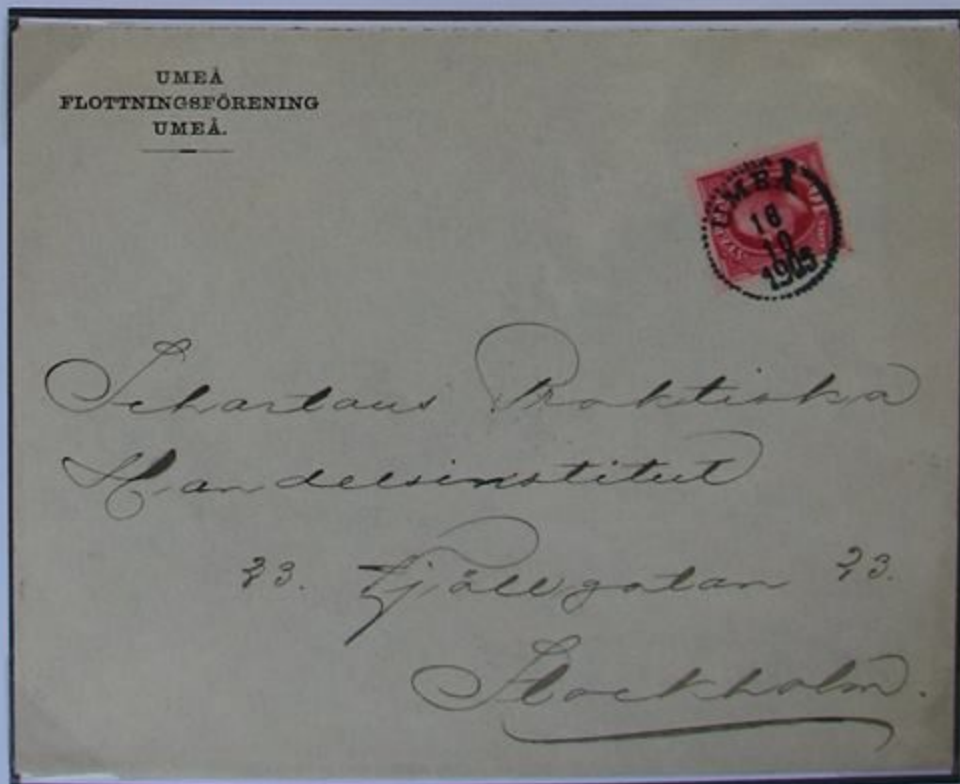 UMEÅ
FLOTTNINGSFÖRENING
UMEÅ.
UMEÅ
18
10
1905
Schartaus Praktiska
Handelsinstitut
23. Fjällgatan 23.
Stockholm.